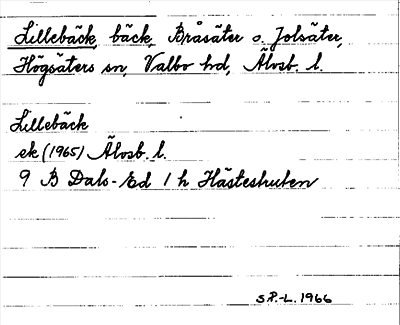 Lillebäck, bäck, Bråsäter o. Jolsäter,
Högsäters sn, Valbo hd, Älvsb. l.
Lillebäck
ek (1965) Älvsb. l.
9 B Dals-Ed 1 h Hästeskuten
S.P.-L. 1966